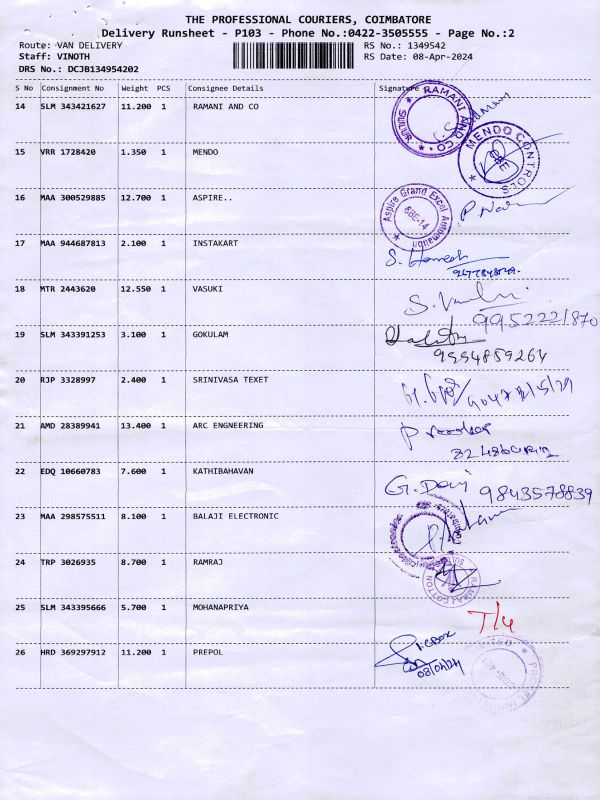 THE PROFESSIONAL COURIERS, COIMBATORE
Delivery Runsheet - P103 - Phone No.:0422-3505555 - Page No.:2
Route: VAN DELIVERY RS No.: 1349542
Staff: VINOTH RS Date: 08-Apr-2024
DRS No.: DCJB134954202
S No Consignment No Weight PCS Consignee Details Signature
14 SLM 343421627 11.200 1 RAMANI AND CO
RAMANI AND CO SULUR
15 VRR 1728420 1.350 1 MENDO
MENDO CONTROLS
16 MAA 300529885 12.700 1 ASPIRE..
Aspire Grand Excel Automation
17 MAA 944687813 2.100 1 INSTAKART
18 MTR 2443620 12.550 1 VASUKI
9952221870
19 SLM 343391253 3.100 1 GOKULAM
9994859264
20 RJP 3328997 2.400 1 SRINIVASA TEXET
21 AMD 28389941 13.400 1 ARC ENGNEERING
22 EDQ 10660783 7.600 1 KATHIBAHAVAN
G. Devi 9843578839
23 MAA 298575511 8.100 1 BALAJI ELECTRONIC
24 TRP 3026935 8.700 1 RAMRAJ
RAMRAJ COTTON
25 SLM 343395666 5.700 1 MOHANAPRIYA
26 HRD 369297912 11.200 1 PREPOL
1.CBOX
08/04/24